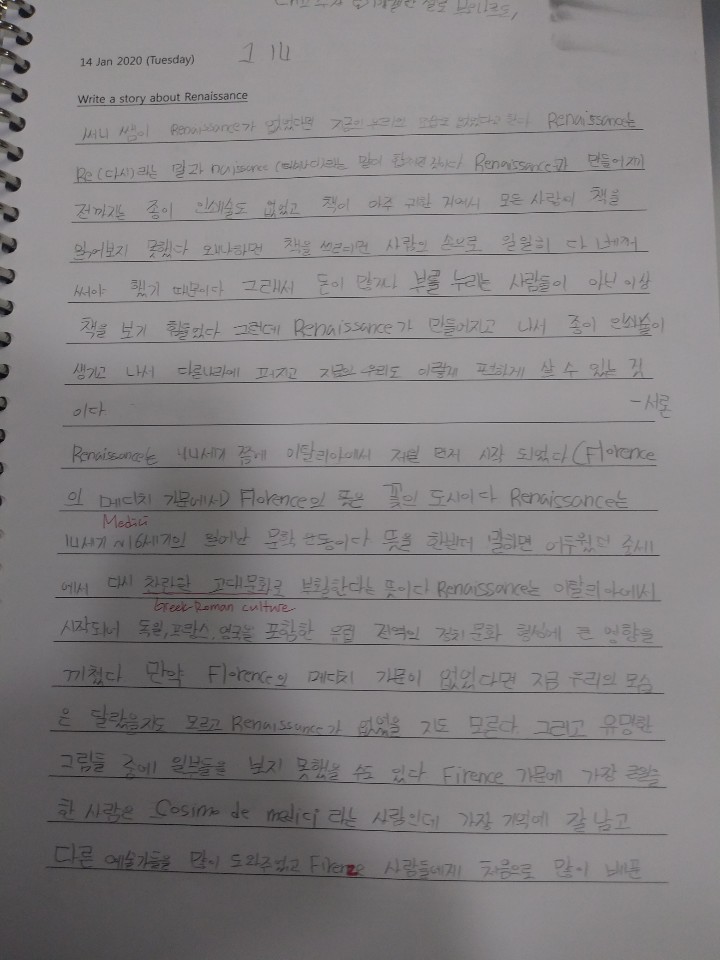 14 Jan 2020 (Tuesday)
Write a story about Renaissance
써니 쌤이 Renaissance가 없었다면 지금의 우리의 모습도 없었다고 한다 Renaissance는
Re(다시)라는 말과 naissance 라는 말이 Renaissance가 만들어지기
전까지는 종이 인쇄술도 없었고 책이 아주 귀한 지여서 모든 사람이 책을
읽어보지 못했다 왜냐하면 책을 쓰려면 사람의 손으로 일일히 다 베껴
써야 했기 때문이다 그래서 돈이 많거나 부를 누리는 사람들이 아닌 이상
책을 보기 힘들었다 그런데 Renaissance가 만들어지고 나서 종이 인쇄술이
생기고 나서 다른나라에 퍼지고 지금의 우리도 이렇게 편하게 살 수 있는 것
이다 -서론
Renaissance는 14세기 쯤에 이탈리아에서 제일 먼저 시작 되었다(Florence
의 메디치 가문에서) Florence의 뜻은 꽃의 도시이다 Renaissance는
Medici
14세기~16세기에 일어난 문학 운동이다 뜻을 한번더 말하면 어두웠던 중세
에서 다시 찬란한 고대문화로 부활한다는 뜻이다 Renaissance는 이탈리아에서
Greek-Roman culture
시작되어 독일,프랑스,영국을 포함한 유럽 전역의 정치 문화 형성에 큰 영향을
끼쳤다 만약 Florence의 메디치 가문이 없었다면 지금 우리의 모습
은 달랐을지도 모르고 Renaissance가 없었을 지도 모른다 그리고 유명한
그림들 중에 일부들을 보지 못했을 수도 있다 Firence 가문에 가장
한 사람은 Cosimo de medici 라는 사람인데 가장 기억에 잘 남고
다른 예술가들을 많이 도와주었고 Firenze 사람들에게 처음으로 많이 베푼